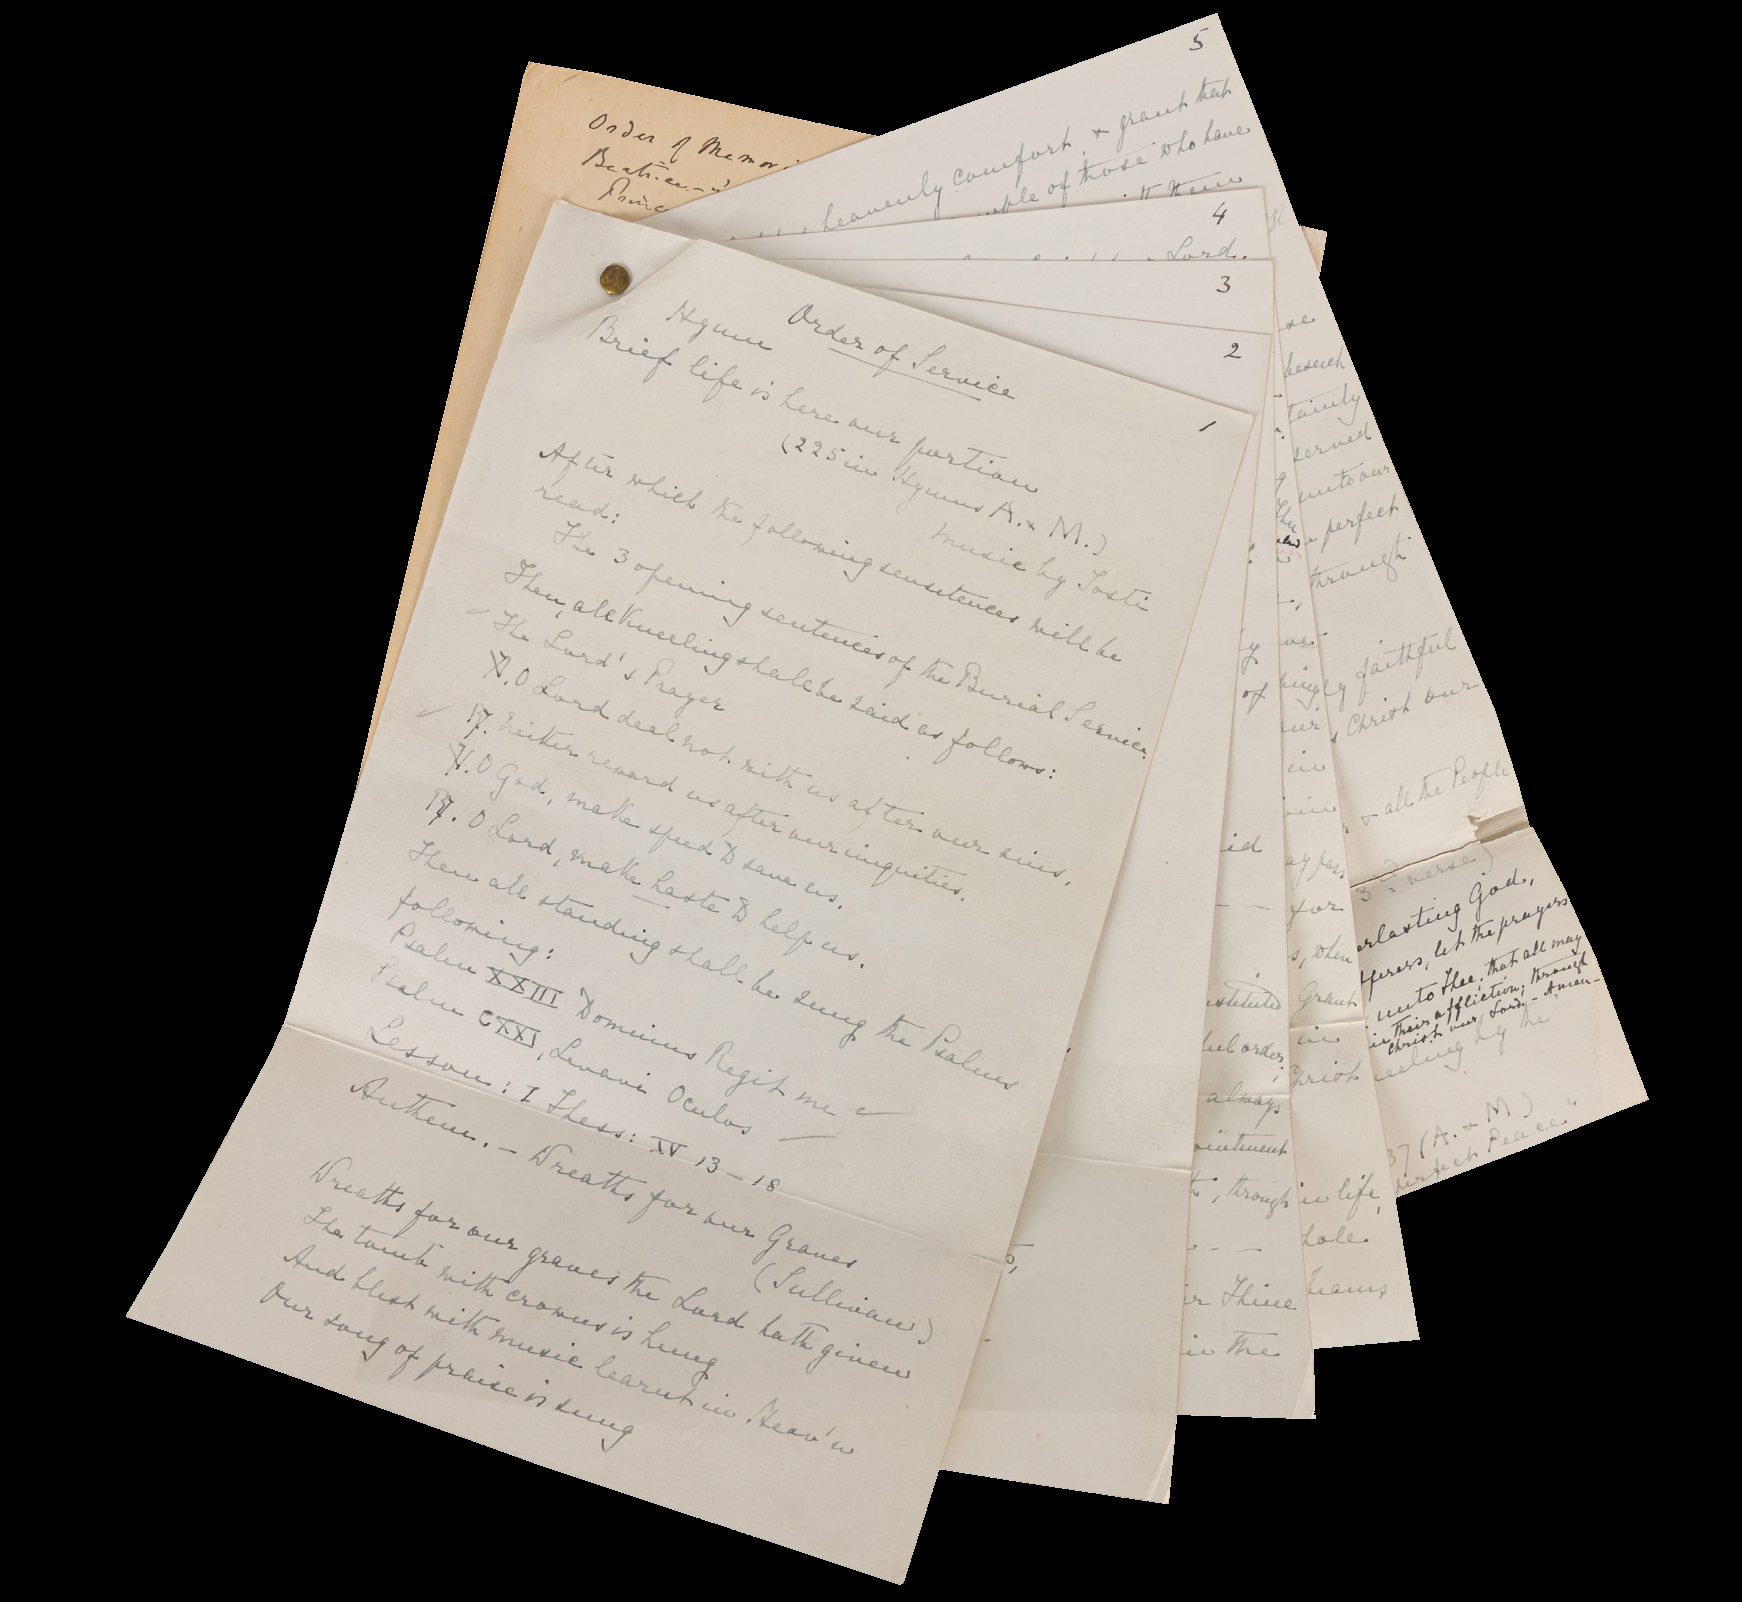 Order of Service
Hymn
Brief life is here our portion
(225 in Hymns A. & M.)
Music by Tosti
After which the following sensetences will be
read:
The 3 opening sentences of the Burial Service.
Then, all kneeling shall be said as follows:
The Lord's Prayer
V. O Lord deal not with us after our sins.
R. Neither reward us after our inquities.
V. O God, make speed to save us.
R. O Lord, make haste to help us.
Then all standing shall be sung the Psalms
following:
Psalm XXIII Dominus Regit me
Psalm CXXI, Levavi Oculos
Lesson: I Thess: IV 13-18
Anthem. - Wreaths for our Graves
(Sullivan)
Wreaths for our graves the Lord hath given
The tomb with crowns is hung
And blest with music learnt in Heav'n
Our song of praise is sung
1
2
3
4
Lord.
5
heavenly comfort & grant that
of those who have
them
Order of Memori
Beatrice
Princ
beseech
served
unto our
perfect
through
faithful
Christ our
& all the People
3rd verse)
erlasting God,
let the prayers
unto Thee, that all may
in their affliction; through
Christ our Lord. - Amen -
by the
37 (A. & M)
Perfect Peace"
of
for
s, when
Grant
in
Christ
in life,
hole
id
order;
always
through
Thine
in the